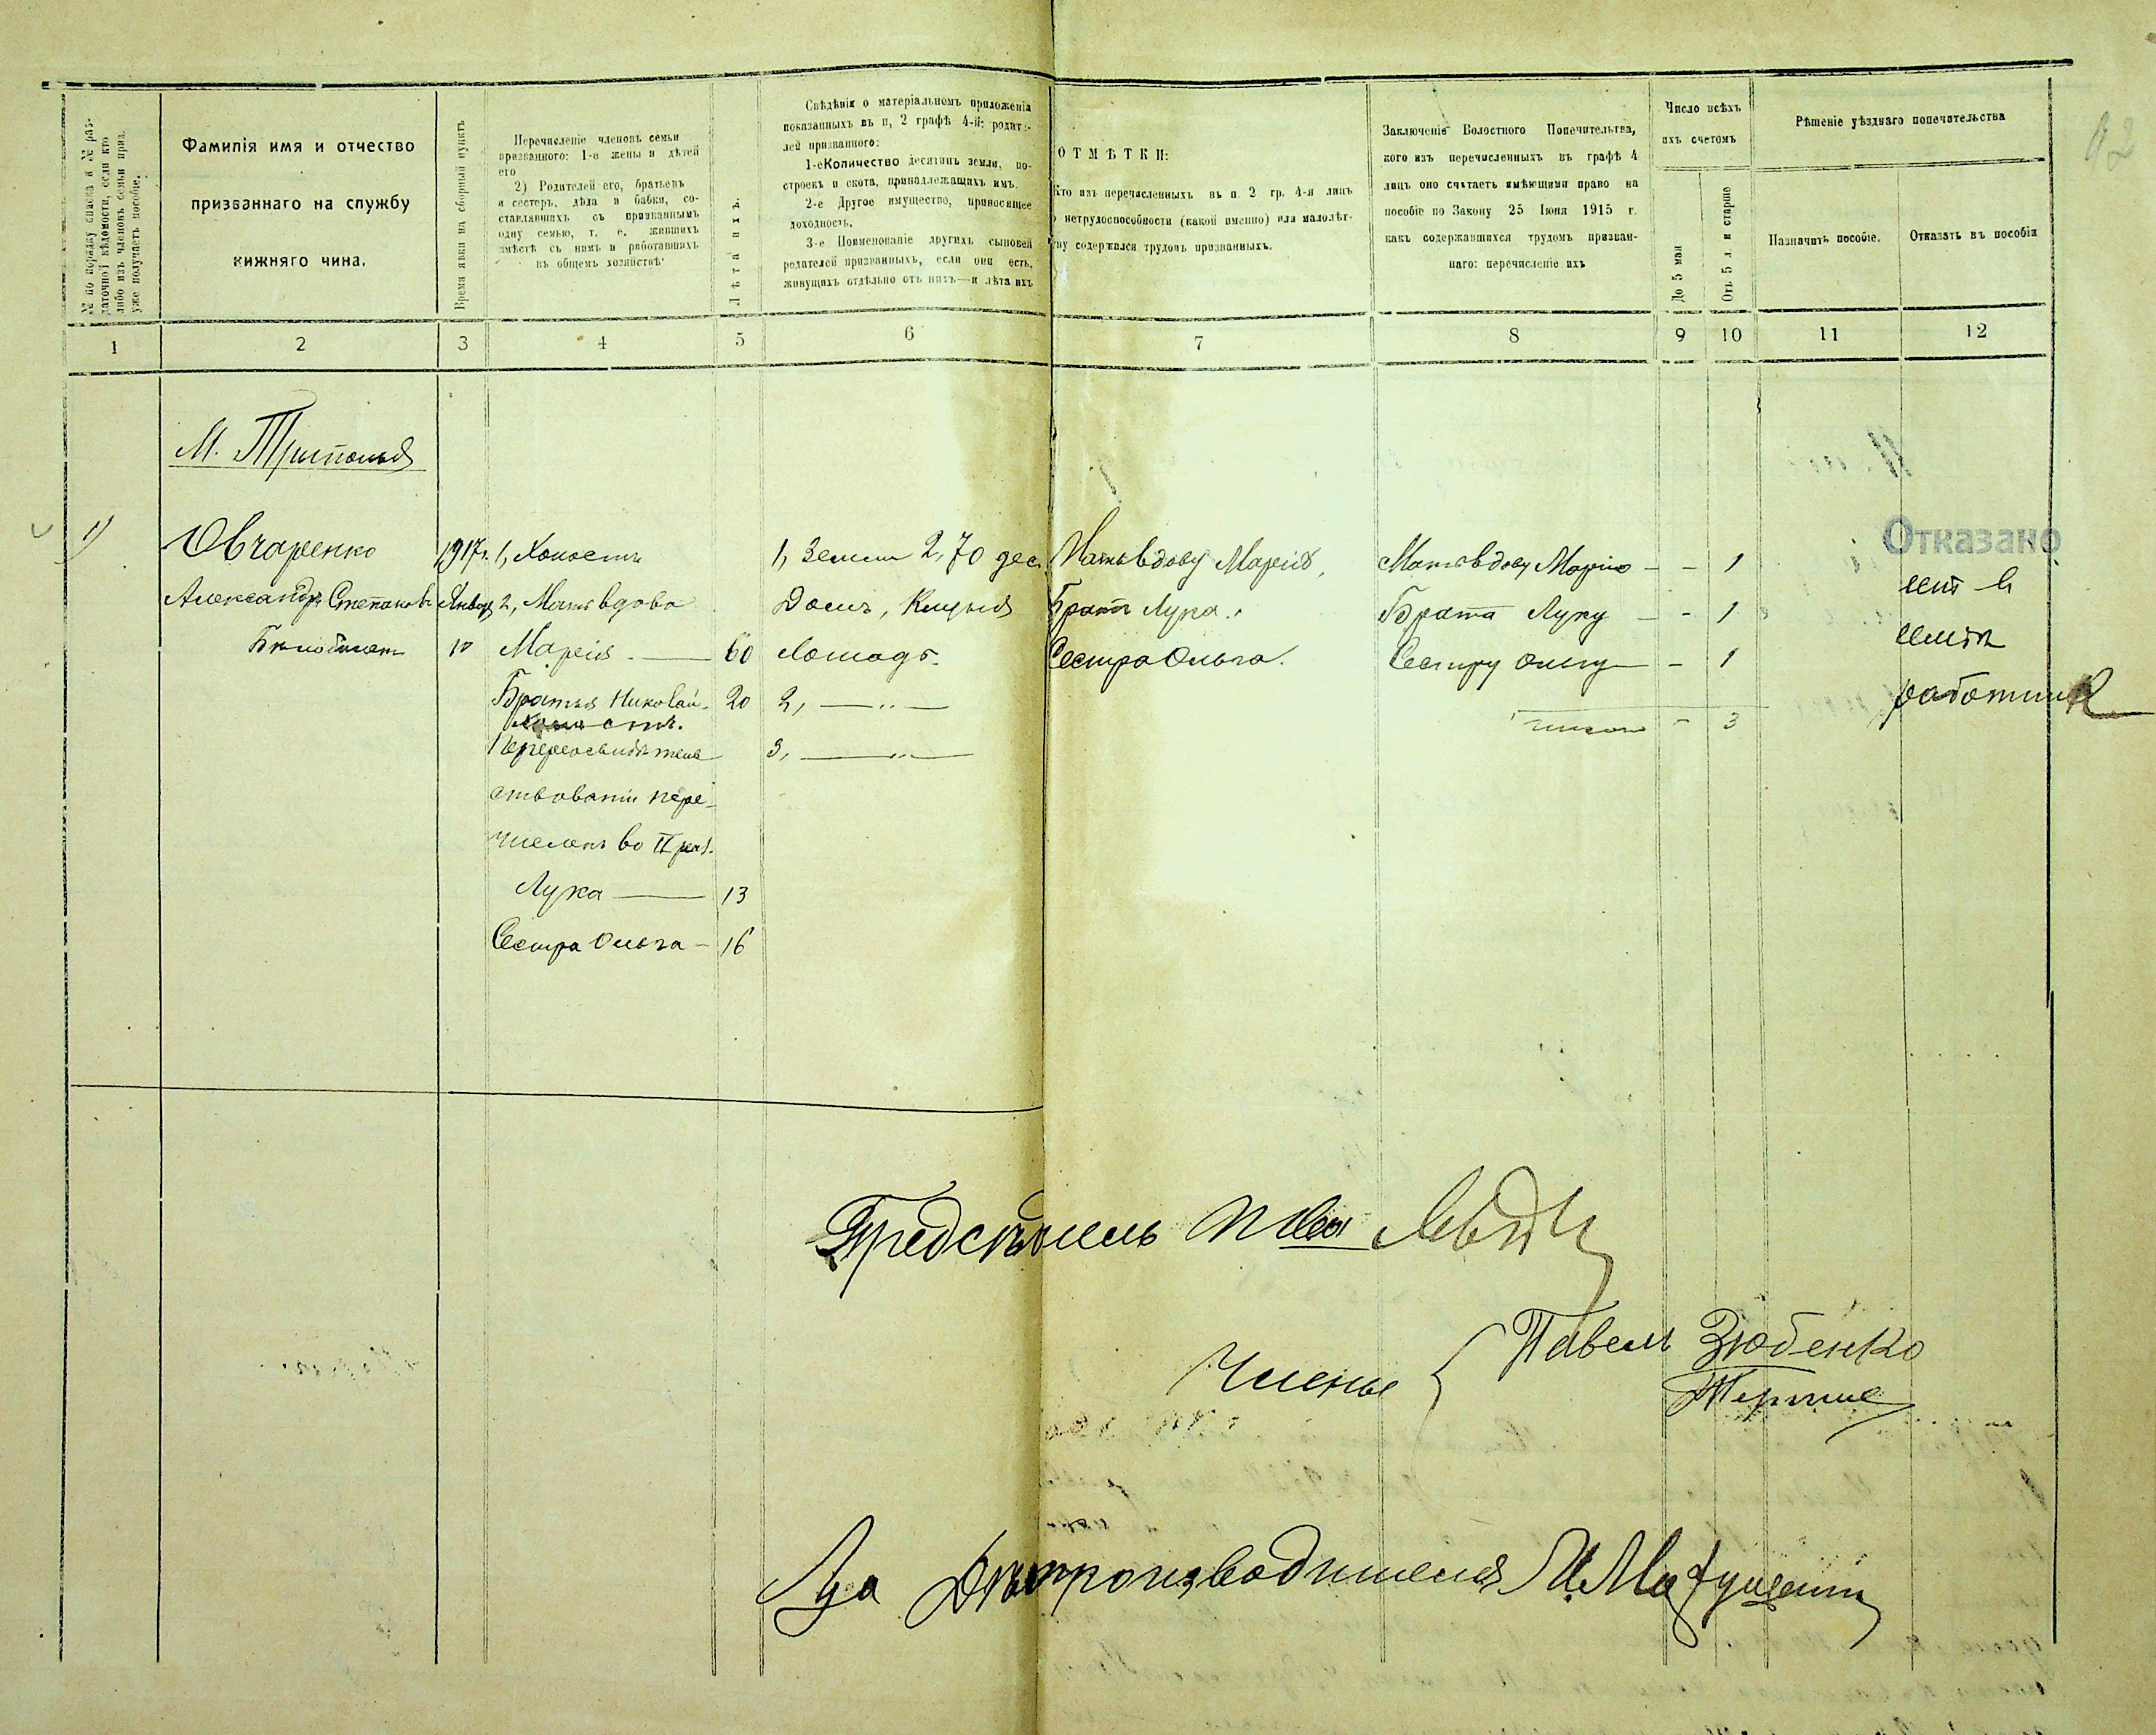 № по порядку списка и № раз-
даточной вѣдомости, если кто
либо изъ членовъ семьи приз.
уже получаетъ пособіе.
Фамилія имя и отчество
призваннаго на службу
нижняго чина.
Время явки на сборный пунктъ
Перечисленіе членовъ семьи
призваннаго: 1-е жены и дѣтей
его
2) Родителей его, братьевъ
и сестеръ, дѣда и бабки, со-
ставлявшихъ съ призваннымъ
одну семью, т. е. жившихъ
вмѣстѣ съ нимъ и работавшихъ
въ общемъ хозяйствѣ:
Лѣта ихъ.
Свѣдѣнія о матеріальномъ приложенія
показанныхъ въ п, 2 графѣ 4-й: родите-
лей призваннаго:
1-е Количество десятинъ земли, по-
строекъ и скота, принадлежащихъ имъ.
2-е Другое имущество, приносящее
доходность.
3-е Поименованіе другихъ сыновей
родителей призванныхъ, если они есть,
живущихъ отдѣльно отъ нихъ—и лѣта ихъ
ОТМѢТКИ:
Кто изъ перечисленныхъ въ п. 2 гр. 4-я лицъ
нетрудоспособности (какой именно) или малолѣт-
ву содержался трудомъ призванныхъ.
Заключеніе Волостного Попечительства,
кого изъ перечисленныхъ въ графѣ 4
лицъ оно считаетъ имѣющими право на
пособіе по Закону 25 Іюня 1915 г.
какъ содержавшихся трудомъ призван-
наго: перечисленіе ихъ
Число всѣхъ
ихъ счетомъ
До 5 мал
Отъ 5 л. и старше
Рѣшеніе уѣзднаго попечительства
Назначить пособіе.
Отказать въ пособіи
1 2 3 4 5 6 7 8 9 10 11 12
М. Триполья
1) Овчаренко 1917 г. 1, Холостъ 1, Земли 2,70 дес. Мать вдову Марія, Мать вдову Марію - - 1 Отказано
Александръ Степановъ Января 2, Мать вдова Домъ, Братъ Лука. Брата Луку - - 1
10 Марія — 60 Лошадь. Сестра Ольга. Сестру Ольгу - 1 семьѣ
Братья Николай - 20 2, — " — - 3 работникъ
Холостъ.
3, — " —
ствованіи пере-
численъ во II раз.
Лука — 13
Сестра Ольга - 16
Члены { Павелъ Зюбенко
Дѣлопроизводителя